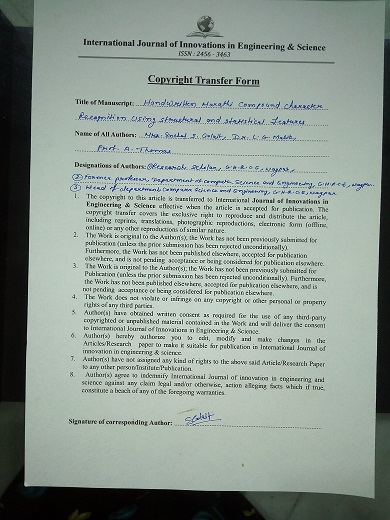 International Journal of Innovations in Engineering & Science
ISSN : 2456 - 3463
Copyright Transfer Form
Title of Manuscript: Handwritten Marathi Compound character
Recognition Using structural and statistical features
Name of All Authors: Mrs. Snehal S. Golait, Dr. L.G. Malik,
Prof. A. Thomas
Designations of Authors: ①Research scholar, G.H.R.C.E, Nagpur,
② Former professor, Department of computer Science and Engineering, G.H.R.C.E, Nagpur.
③ Head of department Computer Science and Engineering, G.H.R.C.E, Nagpur
1. The copyright to this article is transferred to International Journal of Innovations in
Engineering & Science effective when the article is accepted for publication. The
copyright transfer covers the exclusive right to reproduce and distribute the article,
including reprints, translations, photographic reproductions, electronic form (offline,
online) or any other reproductions of similar nature.
2. The Work is original to the Author(s); the Work has not been previously submitted for
publication (unless the prior submission has been rejected unconditionally).
Furthermore, the Work has not been published elsewhere, accepted for publication
elsewhere, and is not pending acceptance or being considered for publication elsewhere.
3. The Work is original to the Author(s); the Work has not been previously submitted for
Publication (unless the prior submission has been rejected unconditionally). Furthermore,
the Work has not been published elsewhere, accepted for publication elsewhere, and is
not pending acceptance or being considered for publication elsewhere.
4. The Work does not violate or infringe on any copyright or other personal or property
rights of any third parties.
5. Author(s) have obtained written consent as required for the use of any third-party
copyrighted or unpublished material contained in the Work and will deliver the consent
to International Journal of Innovations in Engineering & Science.
6. Author(s) hereby authorize you to edit, modify and make changes in the
Articles/Research paper to make it suitable for publication in International Journal of
innovation in engineering & science.
7. Author(s) have not assigned any kind of rights to the above said Article/Research Paper
to any other person/Institute/Publication.
8. Author(s) agree to indemnify International Journal of innovation in engineering and
science against any claim legal and/or otherwise, action alleging facts which if true,
constitute a beach of any of the foregoing warranties.
Signature of corresponding Author: